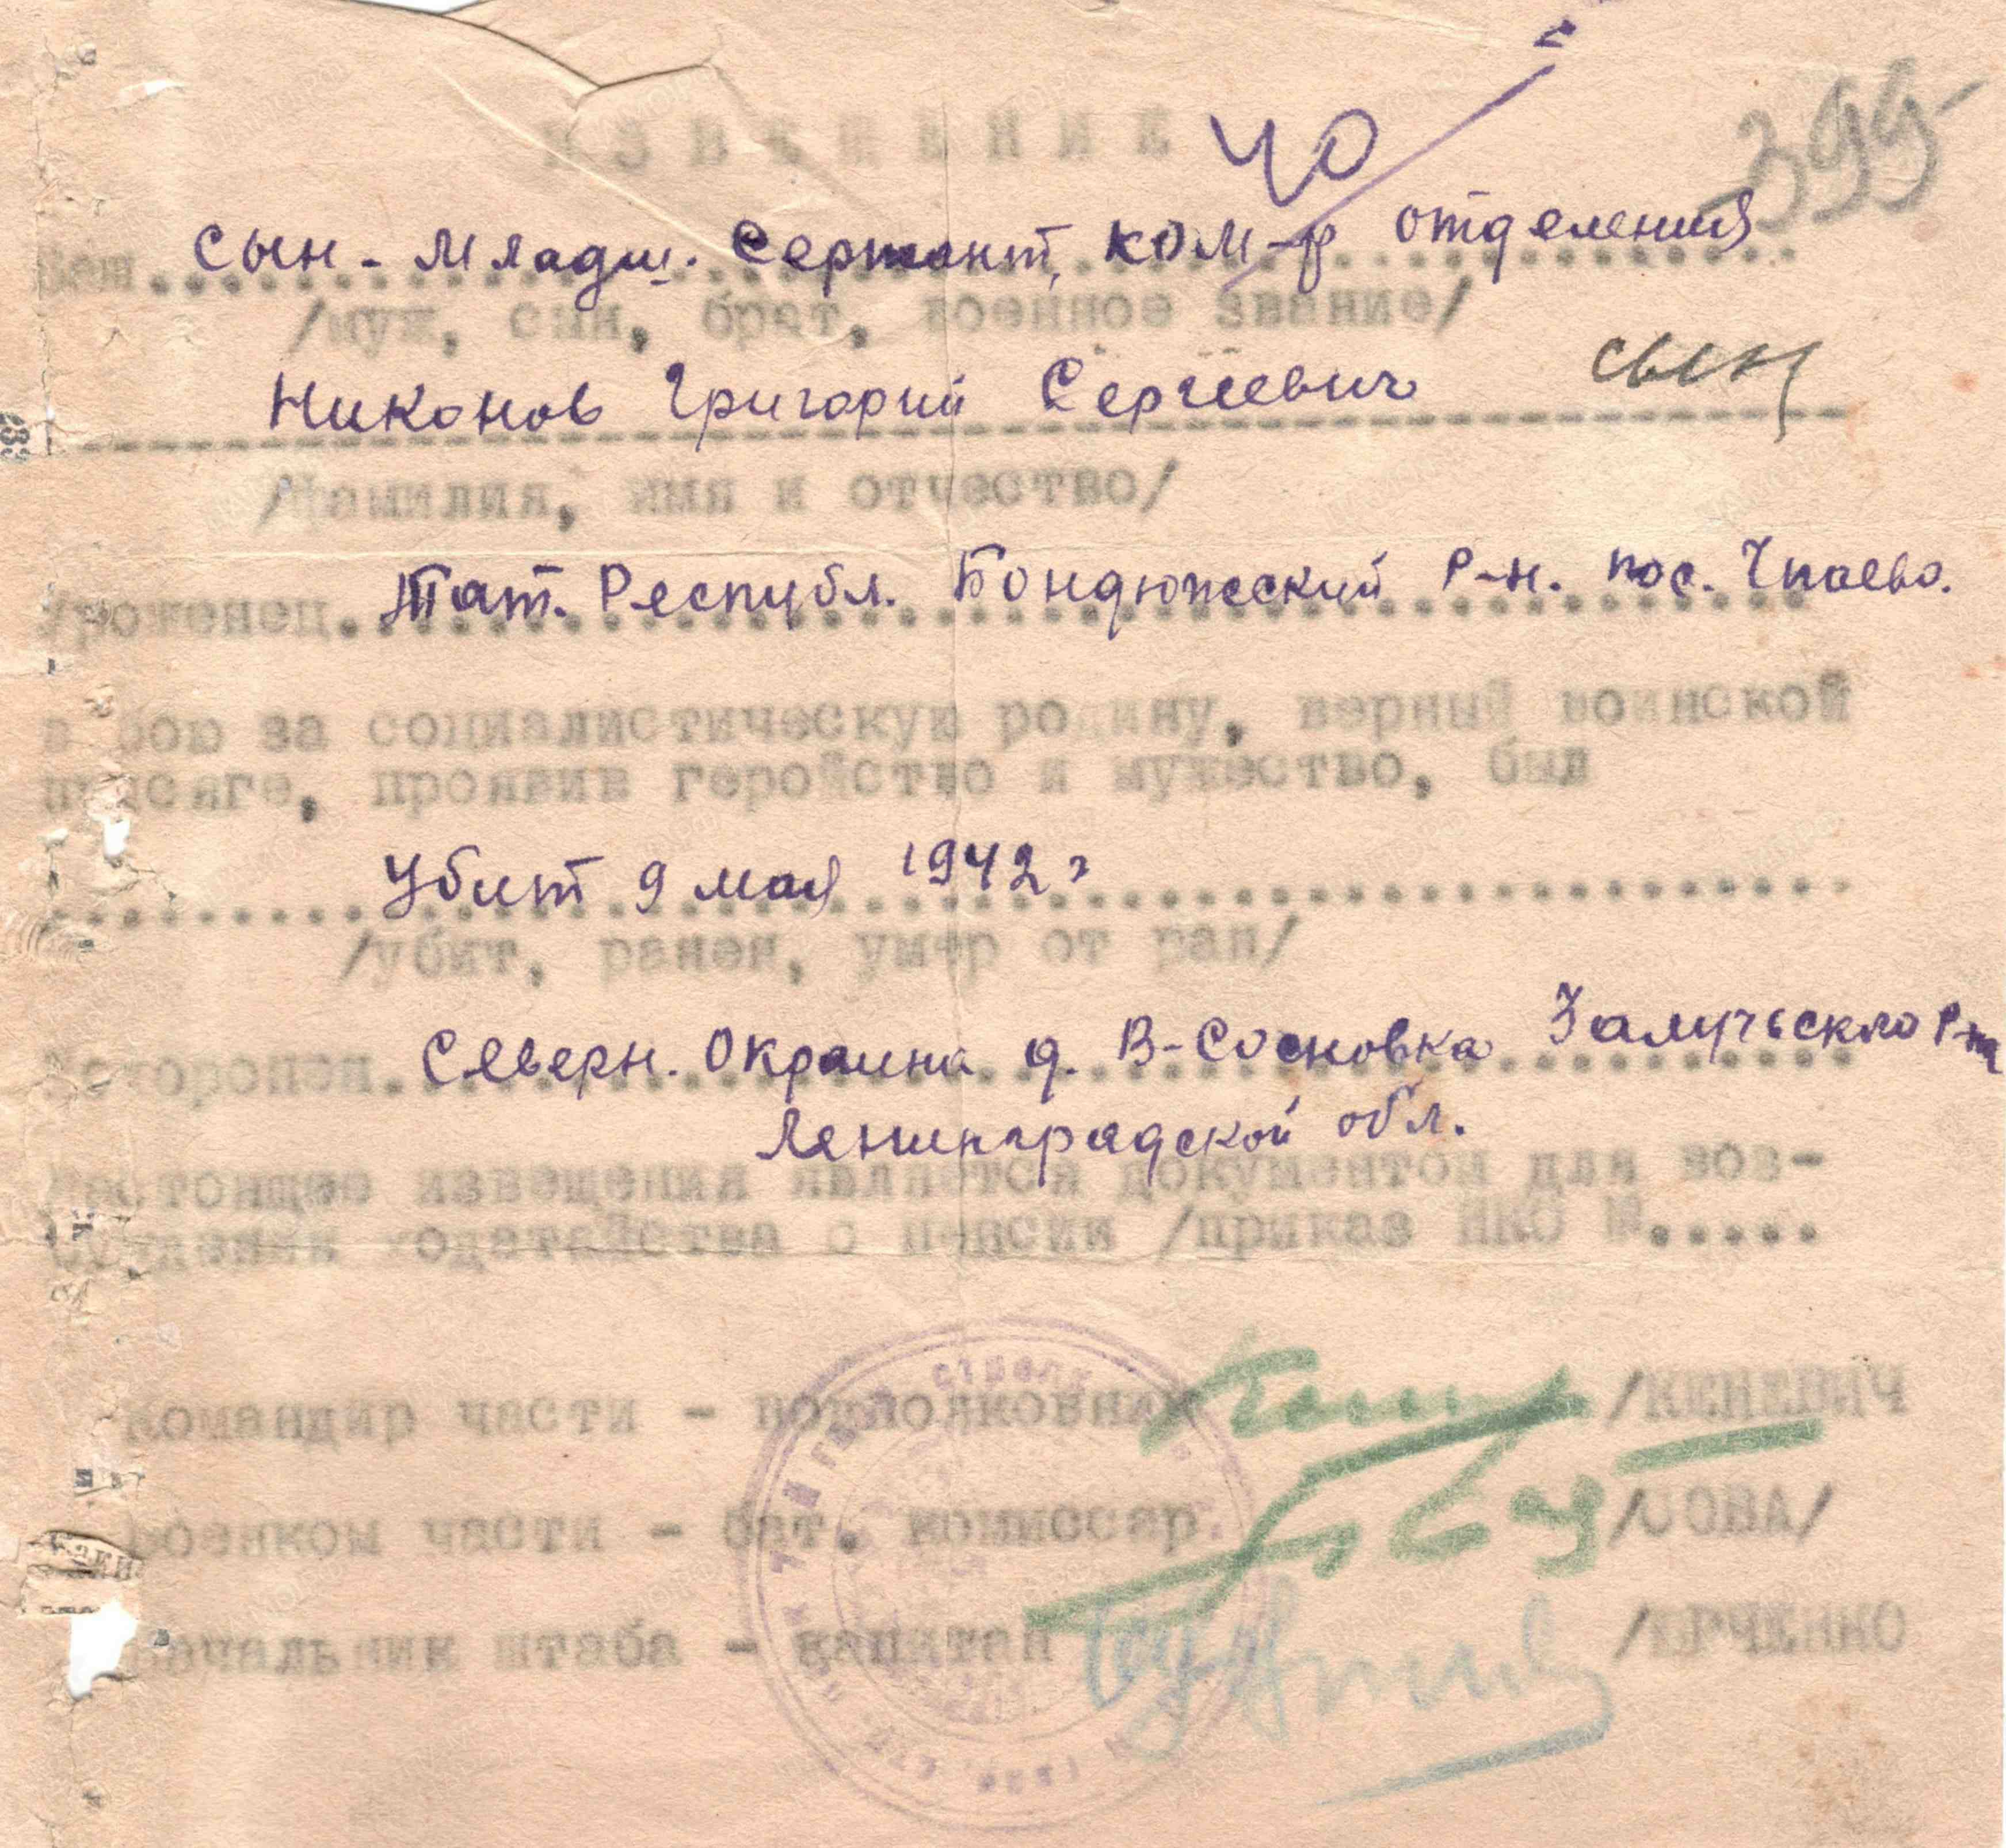 ИЗВЕЩЕНИЕ
40
399
Ваш сын - Младш. Сержант, ком-р отделения
/муж, сын, брат, военное звание/
Никонов Григорий Сергеевич сын
/фамилия, имя и отчество/
Уроженец Тат. Республ. Бондюжский р-н. пос. Чпаево.
в бою за социалистическую родину, верный воинской
присяге, проявив геройство и мужество, был
Убит 9 мая 1942 г
/убит, ранен, умер от ран/
Похоронен Северн. Окраина д. В-Сосновка Залучьского р-на
Ленинградской обл.
Настоящее извещения является документом для воз-
буждения ходатайства о пенсии /приказ НКО №.....
Командир части - подполковник /КЕНЕВИЧ
Военком части - бат. комиссар
Начальник штаба - капитан